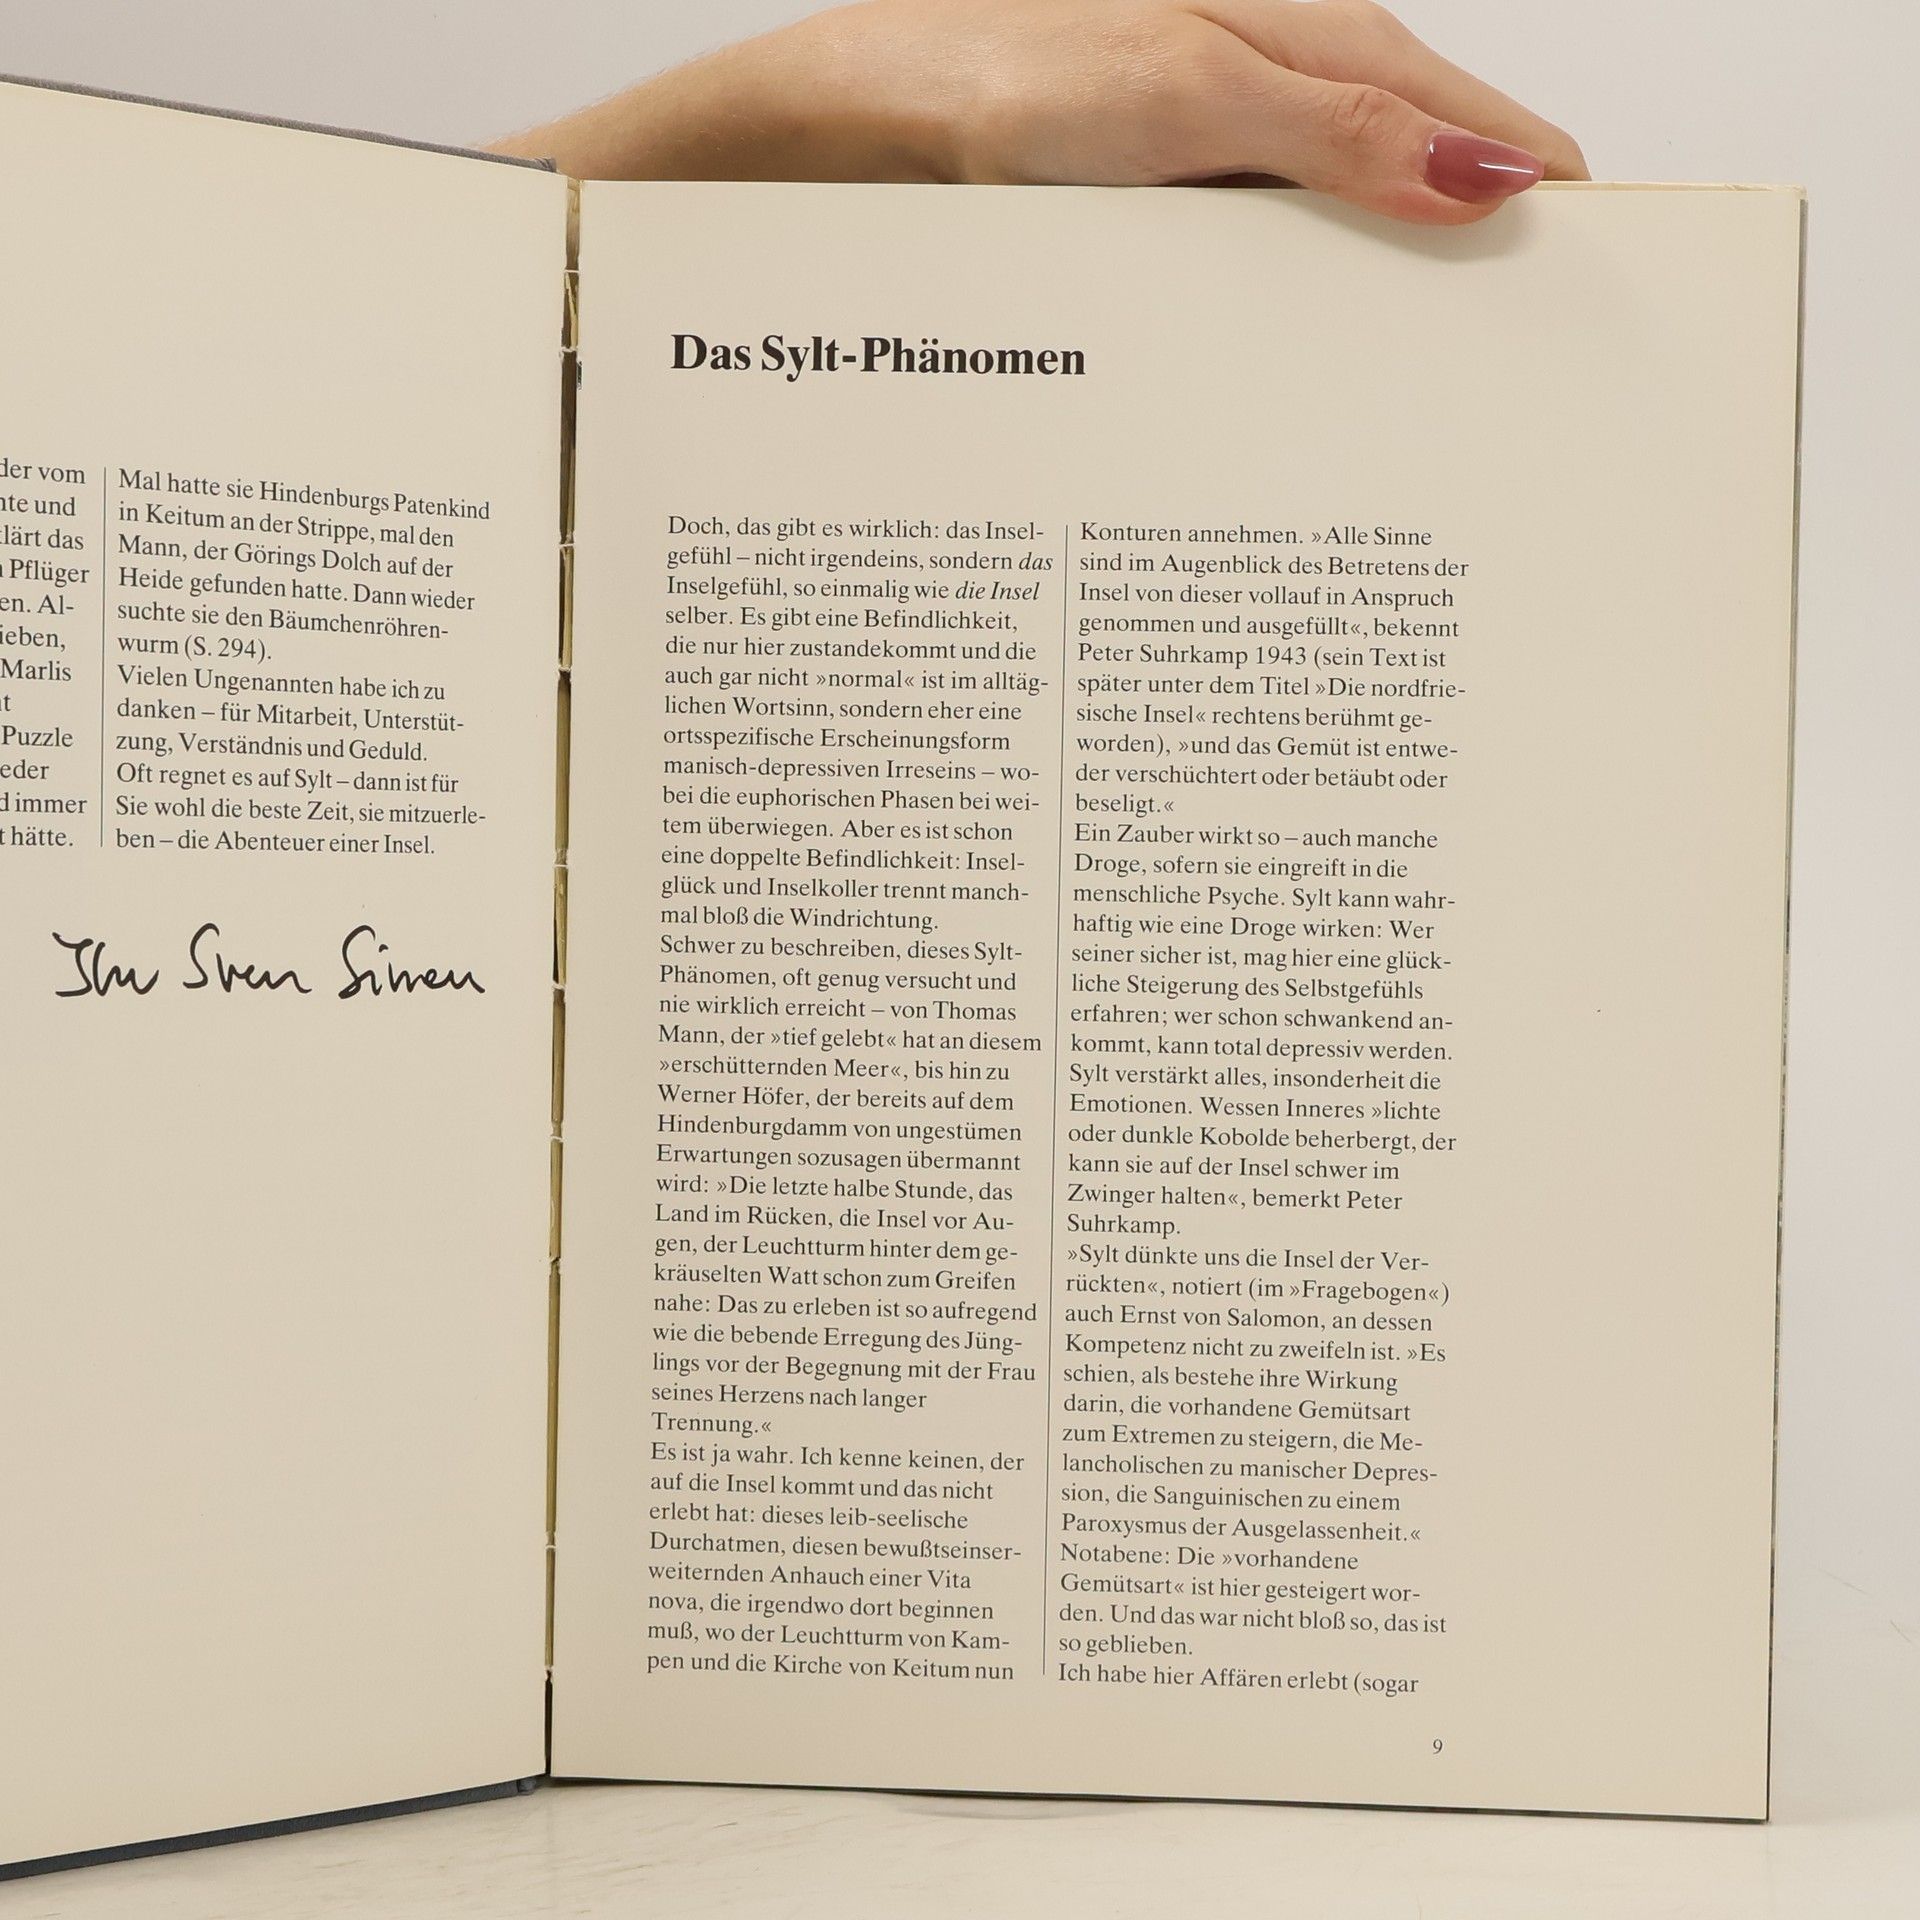 der vom
nte und
lärt das
Pflüger
en. Al-
ieben,
Marlis
t
Puzzle
eder
d immer
t hätte.
Mal hatte sie Hindenburgs Patenkind
in Keitum an der Strippe, mal den
Mann, der Görings Dolch auf der
Heide gefunden hatte. Dann wieder
suchte sie den Bäumchenröhren-
wurm (S. 294).
Vielen Ungenannten habe ich zu
danken – für Mitarbeit, Unterstüt-
zung, Verständnis und Geduld.
Oft regnet es auf Sylt – dann ist für
Sie wohl die beste Zeit, sie mitzuerle-
ben – die Abenteuer einer Insel.
Ihr Sven Simon
Das Sylt-Phänomen
Doch, das gibt es wirklich: das Insel-
gefühl – nicht irgendeins, sondern das
Inselgefühl, so einmalig wie die Insel
selber. Es gibt eine Befindlichkeit,
die nur hier zustandekommt und die
auch gar nicht »normal« ist im alltäg-
lichen Wortsinn, sondern eher eine
ortsspezifische Erscheinungsform
manisch-depressiven Irreseins – wo-
bei die euphorischen Phasen bei wei-
tem überwiegen. Aber es ist schon
eine doppelte Befindlichkeit: Insel-
glück und Inselkoller trennt manch-
mal bloß die Windrichtung.
Schwer zu beschreiben, dieses Sylt-
Phänomen, oft genug versucht und
nie wirklich erreicht – von Thomas
Mann, der »tief gelebt« hat an diesem
»erschütternden Meer«, bis hin zu
Werner Höfer, der bereits auf dem
Hindenburgdamm von ungestümen
Erwartungen sozusagen übermannt
wird: »Die letzte halbe Stunde, das
Land im Rücken, die Insel vor Au-
gen, der Leuchtturm hinter dem ge-
kräuselten Watt schon zum Greifen
nahe: Das zu erleben ist so aufregend
wie die bebende Erregung des Jüng-
lings vor der Begegnung mit der Frau
seines Herzens nach langer
Trennung.«
Es ist ja wahr. Ich kenne keinen, der
auf die Insel kommt und das nicht
erlebt hat: dieses leib-seelische
Durchatmen, diesen bewußtseinser-
weiternden Anhauch einer Vita
nova, die irgendwo dort beginnen
muß, wo der Leuchtturm von Kam-
pen und die Kirche von Keitum nun
Konturen annehmen. »Alle Sinne
sind im Augenblick des Betretens der
Insel von dieser vollauf in Anspruch
genommen und ausgefüllt«, bekennt
Peter Suhrkamp 1943 (sein Text ist
später unter dem Titel »Die nordfrie-
sische Insel« rechtens berühmt ge-
worden), »und das Gemüt ist entwe-
der verschüchtert oder betäubt oder
beseligt.«
Ein Zauber wirkt so – auch manche
Droge, sofern sie eingreift in die
menschliche Psyche. Sylt kann wahr-
haftig wie eine Droge wirken: Wer
seiner sicher ist, mag hier eine glück-
liche Steigerung des Selbstgefühls
erfahren; wer schon schwankend an-
kommt, kann total depressiv werden.
Sylt verstärkt alles, insonderheit die
Emotionen. Wessen Inneres »lichte
oder dunkle Kobolde beherbergt, der
kann sie auf der Insel schwer im
Zwinger halten«, bemerkt Peter
Suhrkamp.
»Sylt dünkte uns die Insel der Ver-
rückten«, notiert (im »Fragebogen«)
auch Ernst von Salomon, an dessen
Kompetenz nicht zu zweifeln ist. »Es
schien, als bestehe ihre Wirkung
darin, die vorhandene Gemütsart
zum Extremen zu steigern, die Me-
lancholischen zu manischer Depres-
sion, die Sanguinischen zu einem
Paroxysmus der Ausgelassenheit.«
Notabene: Die »vorhandene
Gemütsart« ist hier gesteigert wor-
den. Und das war nicht bloß so, das ist
so geblieben.
Ich habe hier Affären erlebt (sogar
9